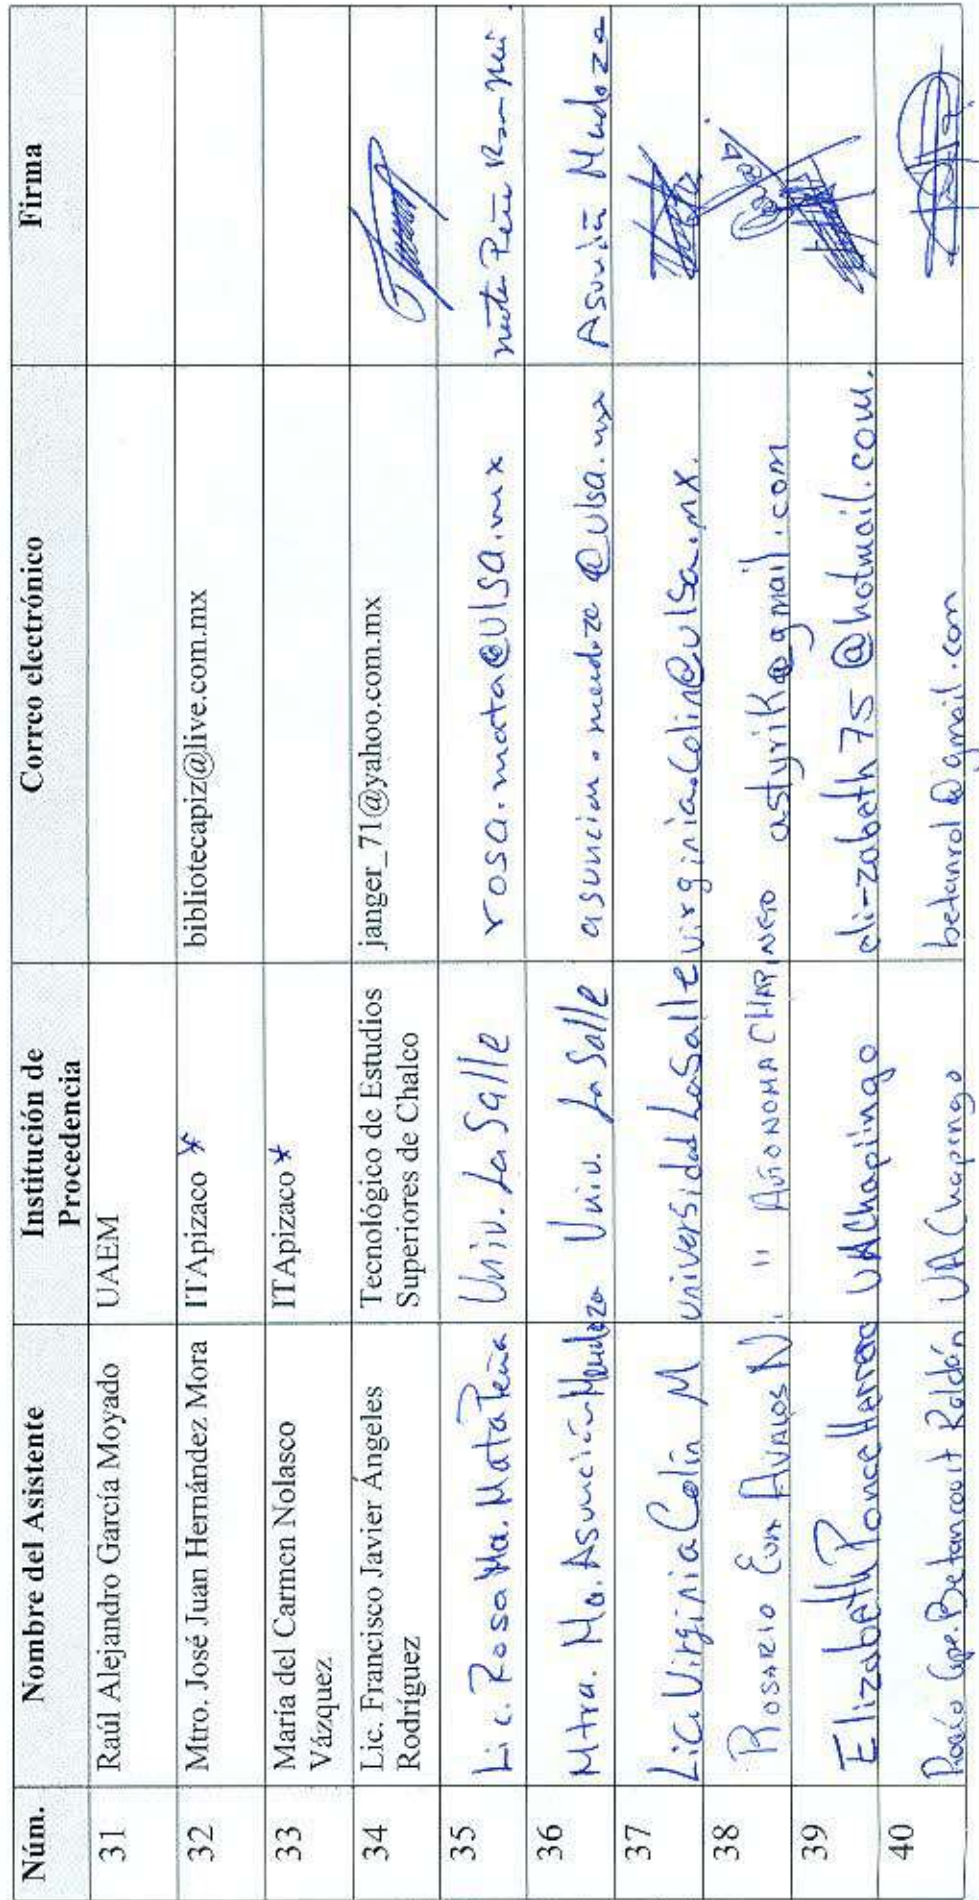 Núm. Nombre del Asistente Institución de Procedencia Correo electrónico Firma
31 Raúl Alejandro García Moyado UAEM
32 Mtro. José Juan Hernández Mora ITApizaco * bibliotecapiz@live.com.mx
33 María del Carmen Nolasco Vázquez ITApizaco *
34 Lic. Francisco Javier Ángeles Rodríguez Tecnológico de Estudios Superiores de Chalco janger_71@yahoo.com.mx
35 Lic. Rosa Ma. Mata Peña Univ. La Salle rosa.mata@ulsa.mx
36 Mtra. Ma. Asunción Mendoza Univ. La Salle asuncion.mendoza@ulsa.mx Asunción Mendoza
37 Lic. Virginia Colín M Universidad La Salle virginia.colin@ulsa.mx.
38 Rosario Eva Avalos N. " AUTONOMA CHAPINGO astyrik@gmail.com
39 Elizabeth Ponce Herrero UAChapingo eli-zabeth75@hotmail.com.
40 Rocío Gpe. Betancourt Roldán UAChapingo betanrol@gmail.com